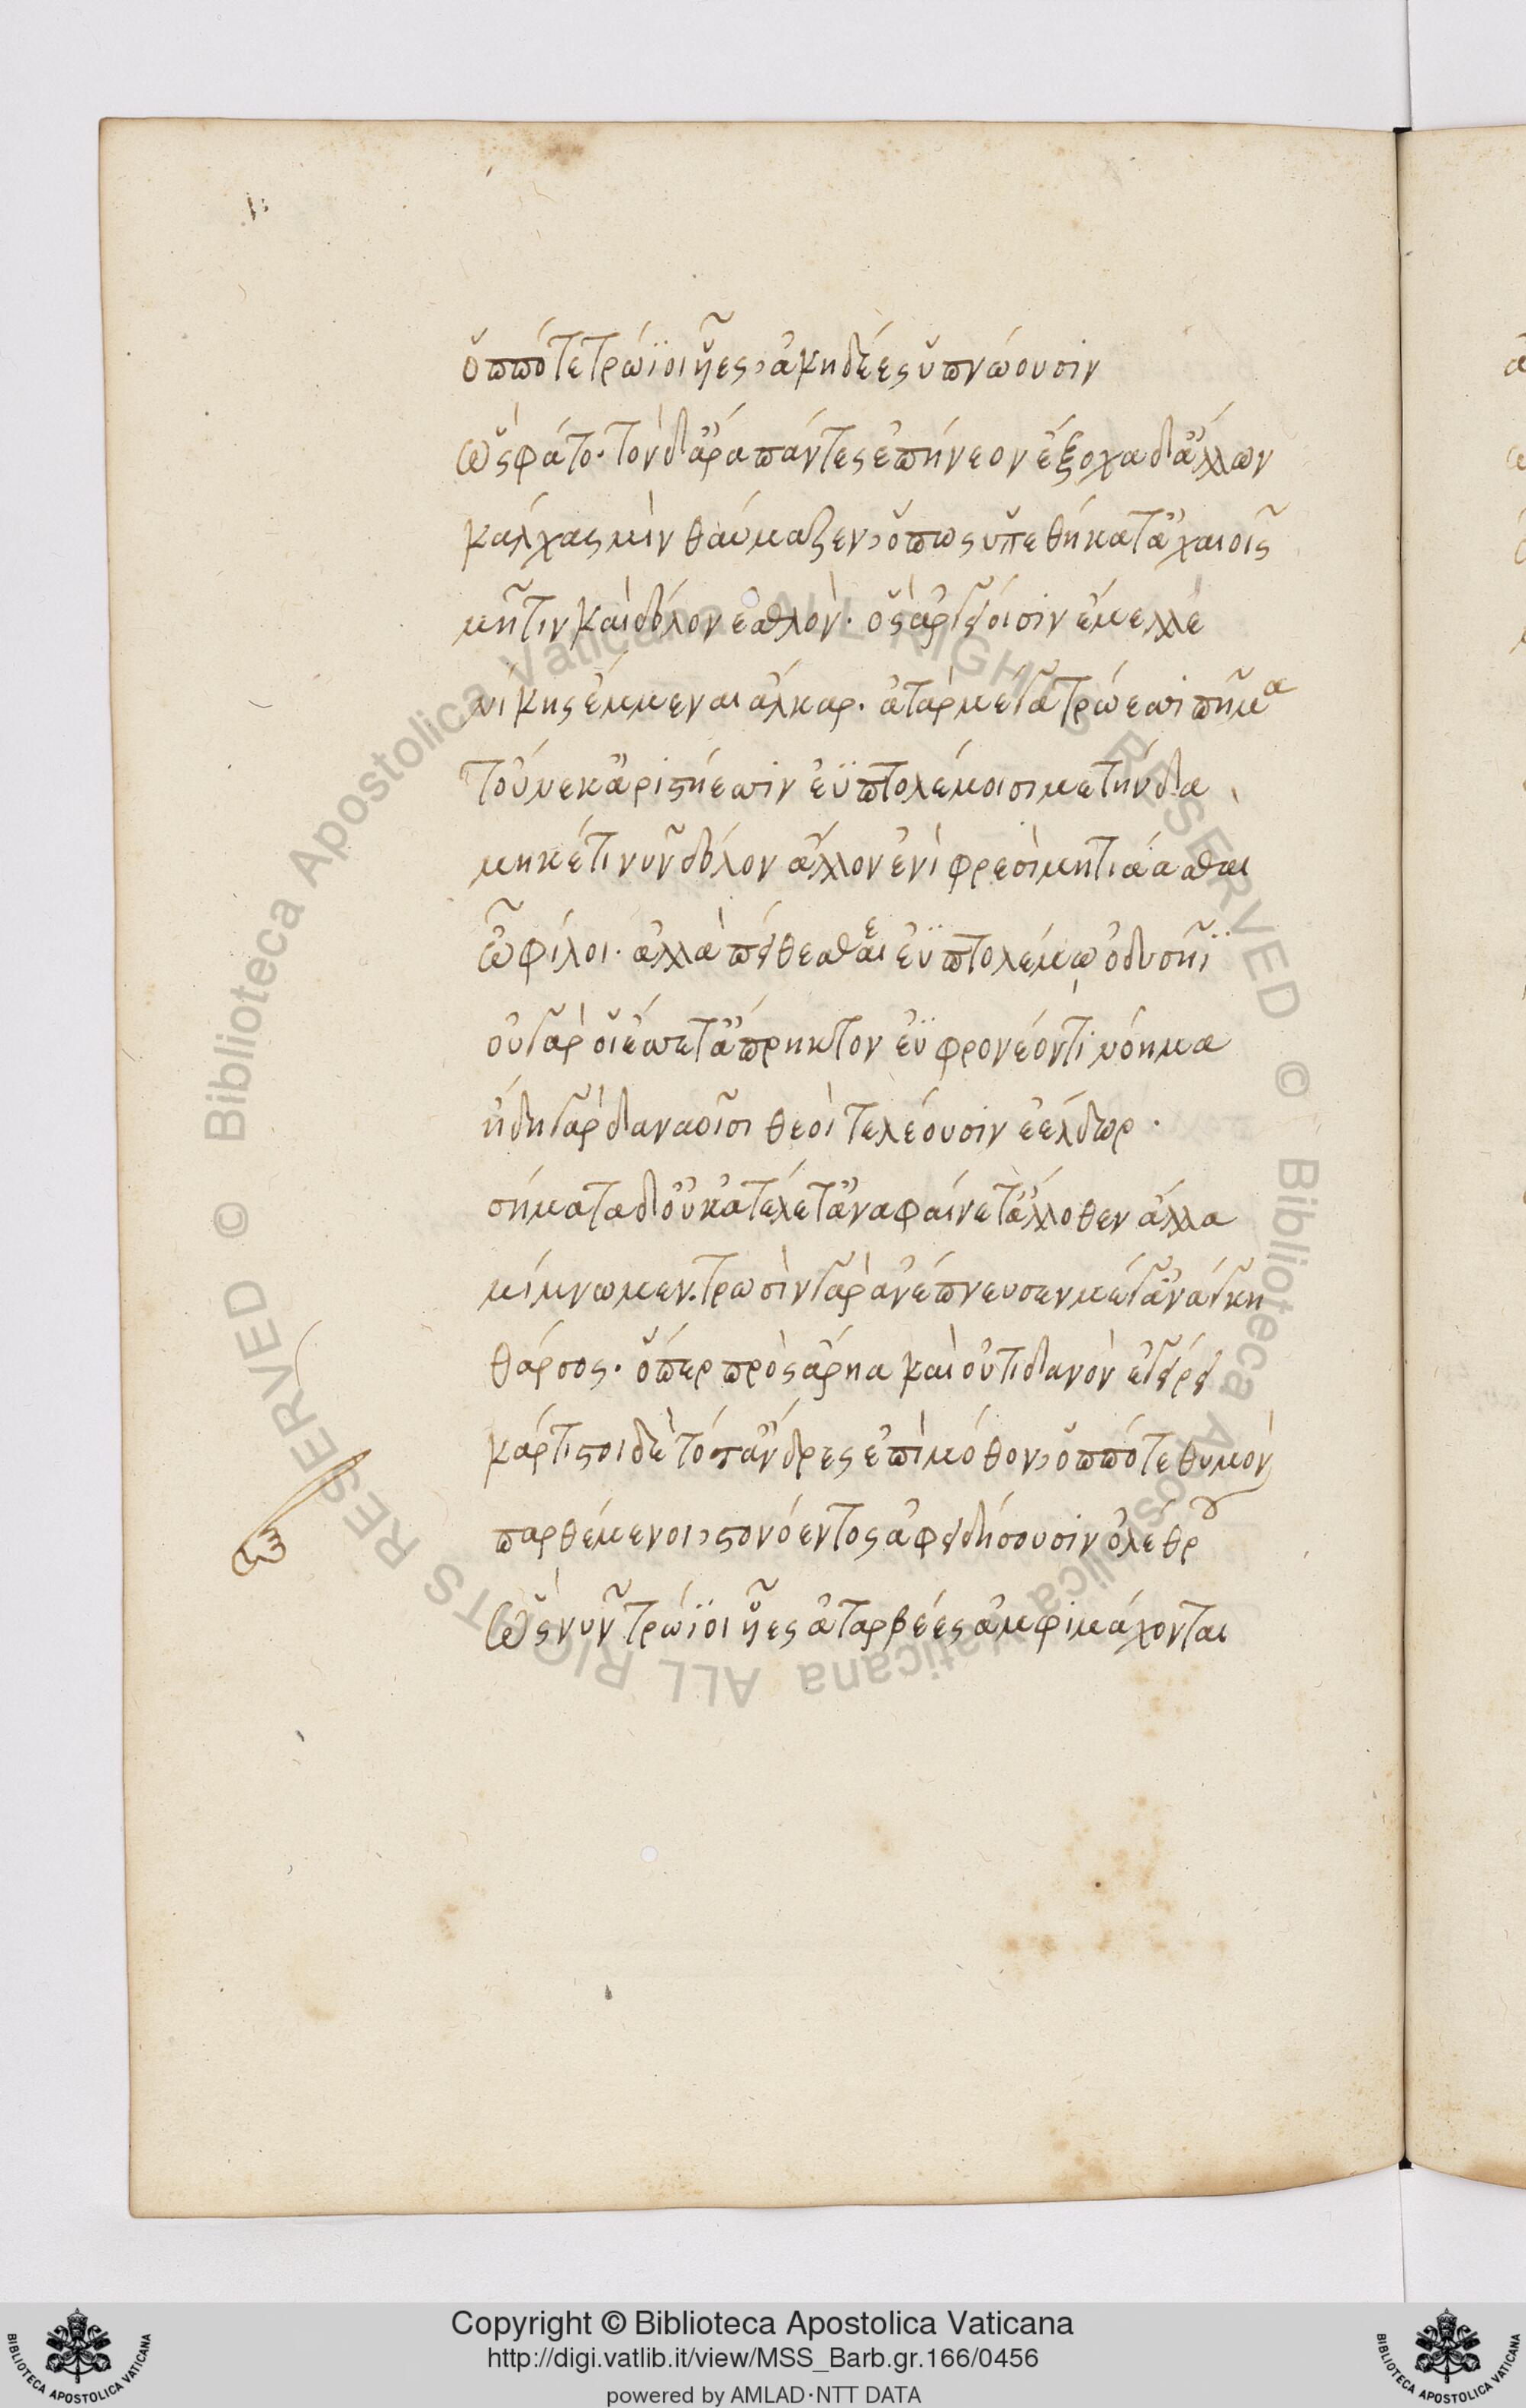 ὁππότε τρώϊοι ἧες, ἀκηδέες ὑπνώουσιν
ὣς φάτο· τὸν δ' ἄρα πάντες ἐπήνεον ἔξοχα δ' ἄλλων
κάλχας μὶν θαύμαζεν, ὅπως ὑπεθήκατ' ἀχαιοῖς
μῆτιν καὶ δόλον ἐσθλὸν· ὃς ἀργείοισιν ἔμελλε
νίκης ἔμμεναι ἄλκαρ· ἀτὰρ μέγα τρώεσσι πῆμα
τοὔνεκ' ἀριστήεσσιν ἐϋπτολέμοισι μετηύδα
μηκέτι νῦν δόλον ἄλλον ἐνὶ φρεσὶ μητιάασθαι
ὦ φίλοι· ἀλλὰ πείθεσθαι ἐϋπτολέμῳ ὀδυσῆϊ
οὐ γὰρ οἱ ἔσσετ' ἄπρηκτον ἐϋφρονέοντι νόημα
ἤδη γὰρ δαναοῖσι θεοὶ τελέουσιν ἐέλδωρ·
σήματα δ' οὐκ ἀτέλεστ' ἀναφαίνετ' ἄλλοθεν ἄλλα
μίμνωμεν. τρωσὶν γὰρ ἀνέπνευσεν μέγ' ἀνάγκη
θάρσος· ὅπερ πρὸς ἄρηα καὶ οὐτιδανὸν ἐγείρει
κάρτιστοι δὲ τότ' ἄνδρες ἐπὶ μόθον, ὁππότε θυμὸν
παρθέμενοι, στονόεντος ἀφειδήσουσιν ὀλέθρου
ὣς νῦν τρώϊοι ἧες ἀταρβέες ἀμφιμάχονται
Copyright © Biblioteca Apostolica Vaticana
http://digi.vatlib.it/view/MSS_Barb.gr.166/0456
powered by AMLAD·NTT DATA
© Biblioteca Apostolica Vaticana ALL RIGHTS RESERVED
© Biblioteca Apostolica Vaticana ALL RIGHTS RESERVED
BIBLIOTECA APOSTOLICA VATICANA
BIBLIOTECA APOSTOLICA VATICANA